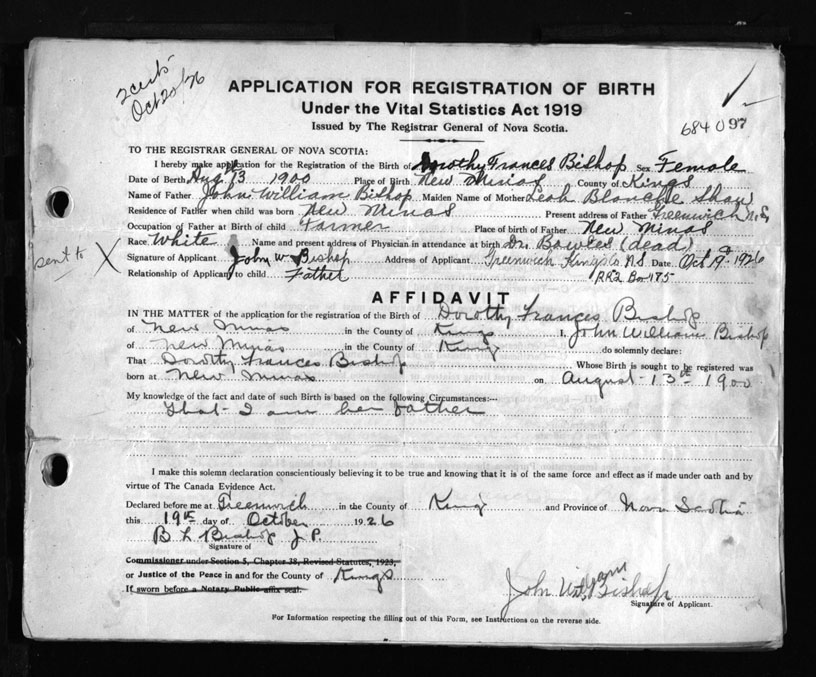 2 certs
Oct 20/26
APPLICATION FOR REGISTRATION OF BIRTH
Under the Vital Statistics Act 1919
Issued by The Registrar General of Nova Scotia.
684097
TO THE REGISTRAR GENERAL OF NOVA SCOTIA:
I hereby make application for the Registration of the Birth of Dorothy Frances Bishop Sex Female
Date of Birth Aug 13 1900 Place of Birth New Minas County of Kings
Name of Father John William Bishop Maiden Name of Mother Leah Blanche Shaw
Residence of Father when child was born New Minas Present address of Father Greenwich N.S.
Occupation of Father at Birth of child Farmer Place of birth of Father New Minas
Race White Name and present address of Physician in attendance at birth Dr. Bowles (dead)
sent to X Signature of Applicant John W Bishop Address of Applicant Greenwich Kings Co N.S. Date Oct 19th 1926
Relationship of Applicant to child Father RR2 Box 175
AFFIDAVIT
IN THE MATTER of the application for the registration of the Birth of Dorothy Frances Bishop
of New Minas in the County of Kings I, John William Bishop
of New Minas in the County of Kings do solemnly declare:
That Dorothy Frances Bishop Whose Birth is sought to be registered was
born at New Minas on August 13th 1900
My knowledge of the fact and date of such Birth is based on the following Circumstances:—
That I am her father
I make this solemn declaration conscientiously believing it to be true and knowing that it is of the same force and effect as if made under oath and by
virtue of The Canada Evidence Act.
Declared before me at Greenwich in the County of Kings and Province of Nova Scotia
this 19th day of October 1926
B L Bishop J.P.
Signature of
Commissioner under Section 5, Chapter 38, Revised Statutes, 1923,
or Justice of the Peace in and for the County of Kings
If sworn before a Notary Public affix seal.
John William Bishop
Signature of Applicant.
For Information respecting the filling out of this Form, see Instructions on the reverse side.